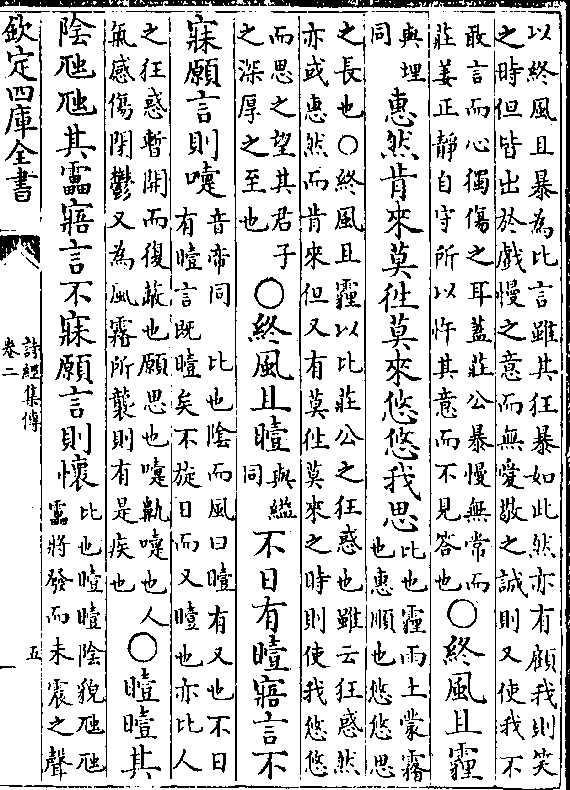 以終風且暴為比言雖其狂暴如此然亦有顧我則笑
之時但皆出於戲慢之意而無愛敬之誠則又使我不
敢言而心獨傷之耳蓋莊公暴慢無常而
莊姜正靜自守所以忤其意而不見答也
○終風且霾
與埋
同
惠然肯來莫徃莫來悠悠我思
比也霾雨土蒙霧
也惠順也悠悠思
之長也○終風且霾以比莊公之狂惑也雖云狂惑然
亦或惠然而肯來但又有莫徃莫來之時則使我悠悠
而思之望其君子
之深厚之至也
○終風且曀
與縊
同
不日有曀寤言不
寐願言則嚏
音帝同 比也陰而風曰曀有又也不日
有曀言既曀矣不旋日而又曀也亦比人
之狂惑暫開而復蔽也願思也嚏鼽嚏也人
氣感傷閉鬱又為風霧所襲則有是疾也
○曀曀其
陰虺虺其靁寤言不寐願言則懷
比也曀曀陰貌虺虺
靁將發而未震之聲
欽定四庫全書
詩經集傳
卷二
五